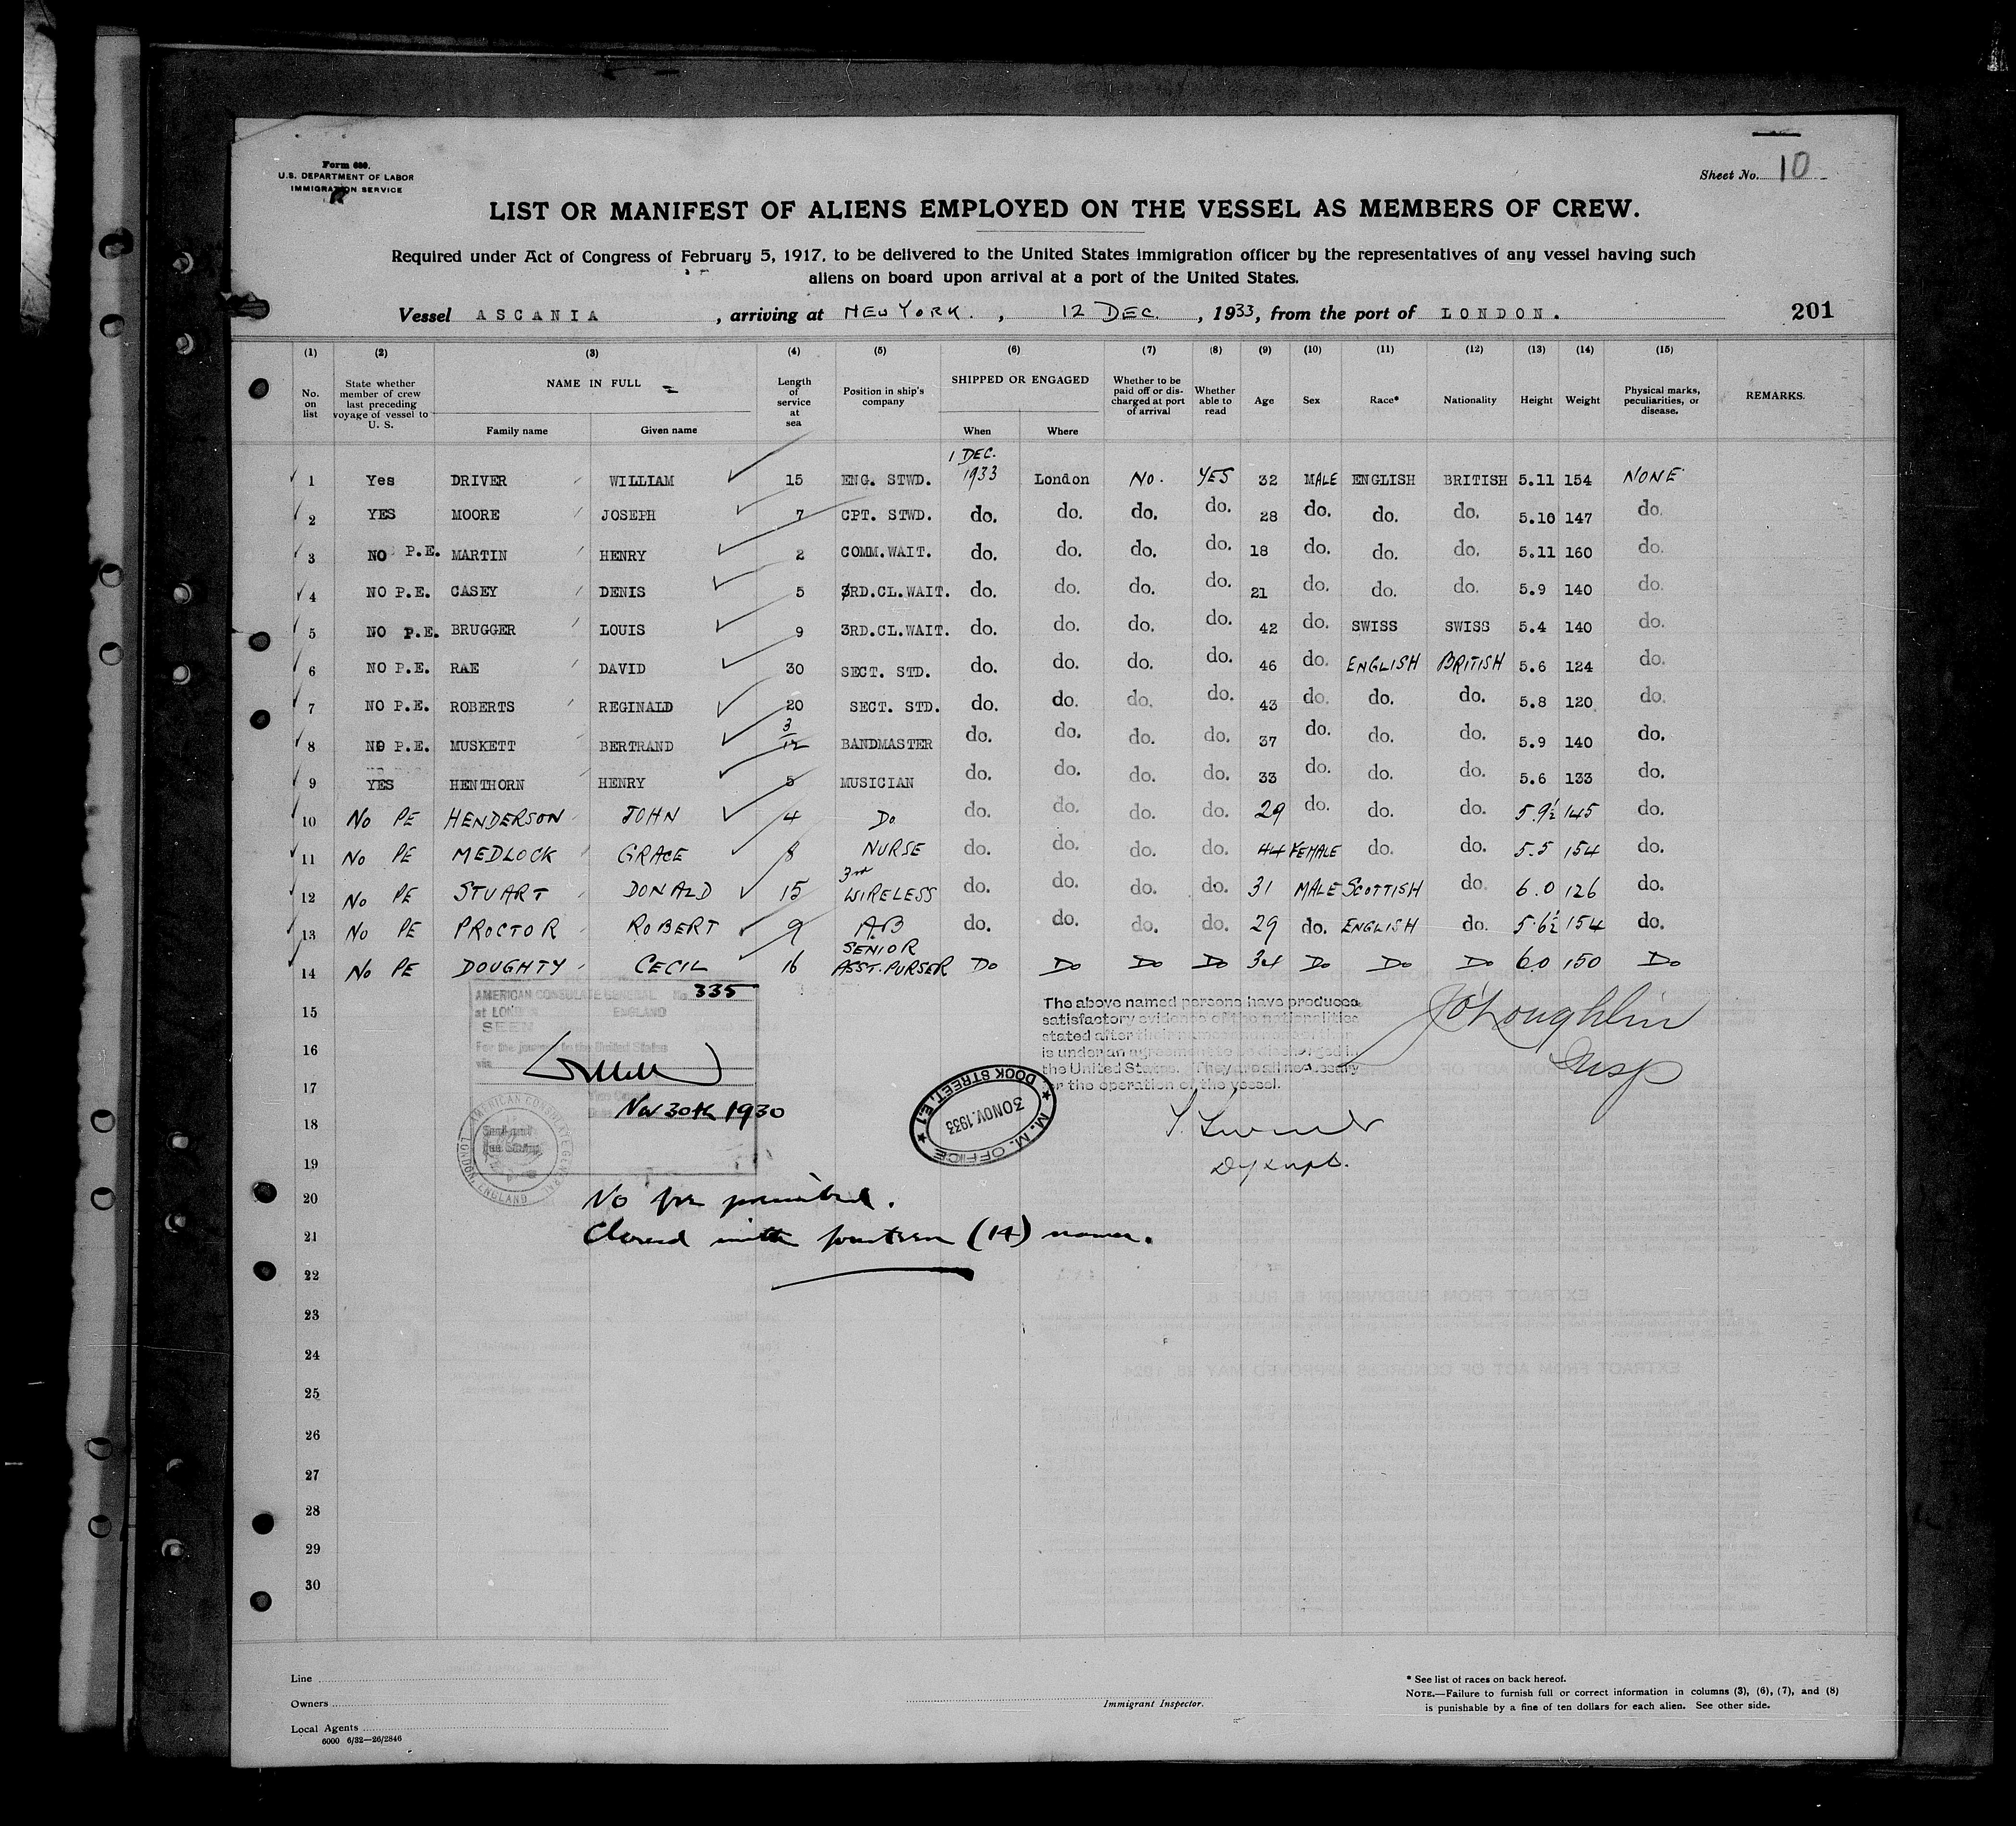 Form 680.
U.S. DEPARTMENT OF LABOR
IMMIGRATION SERVICE
Sheet No. 10
LIST OR MANIFEST OF ALIENS EMPLOYED ON THE VESSEL AS MEMBERS OF CREW.
Required under Act of Congress of February 5, 1917, to be delivered to the United States immigration officer by the representatives of any vessel having such
aliens on board upon arrival at a port of the United States.
Vessel ASCANIA, arriving at NEW YORK., 12 DEC., 1933, from the port of LONDON. 201
(1) (2) (3) (4) (5) (6) (7) (8) (9) (10) (11) (12) (13) (14) (15)
No. on list State whether member of crew last preceding voyage of vessel to U. S. NAME IN FULL Family name Given name Length of service at sea Position in ship's company SHIPPED OR ENGAGED When Where Whether to be paid off or discharged at port of arrival Whether able to read Age Sex Race* Nationality Height Weight Physical marks, peculiarities, or disease. REMARKS.
1 Yes DRIVER WILLIAM 15 ENG. STWD. 1 DEC. 1933 London NO. YES 32 MALE ENGLISH BRITISH 5.11 154 NONE
2 YES MOORE JOSEPH 7 CPT. STWD. do. do. do. do. 28 do. do. do. 5.10 147 do.
3 NO P.E. MARTIN HENRY 2 COMM.WAIT. do. do. do. do. 18 do. do. do. 5.11 160 do.
4 NO P.E. CASEY DENIS 5 3RD.CL.WAIT. do. do. do. do. 21 do. do. do. 5.9 140 do.
5 NO P.E. BRUGGER LOUIS 9 3RD.CL.WAIT. do. do. do. do. 42 do. SWISS SWISS 5.4 140 do.
6 NO P.E. RAE DAVID 30 SECT. STD. do. do. do. do. 46 do. ENGLISH BRITISH 5.6 124 do.
7 NO P.E. ROBERTS REGINALD 20 SECT. STD. do. do. do. do. 43 do. do. do. 5.8 120 do.
8 NO P.E. MUSKETT BERTRAND 3/12 BANDMASTER do. do. do. do. 37 do. do. do. 5.9 140 do.
9 YES HENTHORN HENRY 5 MUSICIAN do. do. do. do. 33 do. do. do. 5.6 133 do.
10 No PE HENDERSON JOHN 4 Do do. do. do. do. 29 do. do. do. 5.9½ 145 do.
11 No PE MEDLOCK GRACE 8 NURSE do. do. do. do. 44 FEMALE do. do. 5.5 154 do.
12 No PE STUART DONALD 15 3rd WIRELESS do. do. do. do. 31 MALE SCOTTISH do. 6.0 126 do.
13 No PE PROCTOR ROBERT 9 A.B do. do. do. do. 29 do. ENGLISH do. 5.6½ 154 do.
14 No PE DOUGHTY CECIL 16 SENIOR ASST. PURSER Do Do Do Do 34 Do Do Do 6.0 150 Do
15
16
17
18
19
20
21
22
23
24
25
26
27
28
29
30
AMERICAN CONSULATE GENERAL No. 335
at LONDON ENGLAND
SEEN
For the journey to the United States
via
Nov 30th 1930
AMERICAN CONSULATE GENERAL LONDON, ENGLAND
M. M. OFFICE
30 NOV. 1933
DOCK STREET. E.1
The above named persons have produced
satisfactory evidence of the nationalities
stated after their names
is under an agreement to be discharged in
the United States. They are all necessary
for the operation of the vessel.
J O'Loughlin
Insp
Dy Supt.
No fee prescribed.
Closed with fourteen (14) names.
EXTRACT FROM SUBDIVISION B, RULE 8
EXTRACT FROM ACT OF CONGRESS APPROVED MAY 26, 1924
Line
Owners
Local Agents
6000 6/32—26/2846
Immigrant Inspector.
* See list of races on back hereof.
NOTE.—Failure to furnish full or correct information in columns (3), (6), (7), and (8)
is punishable by a fine of ten dollars for each alien. See other side.